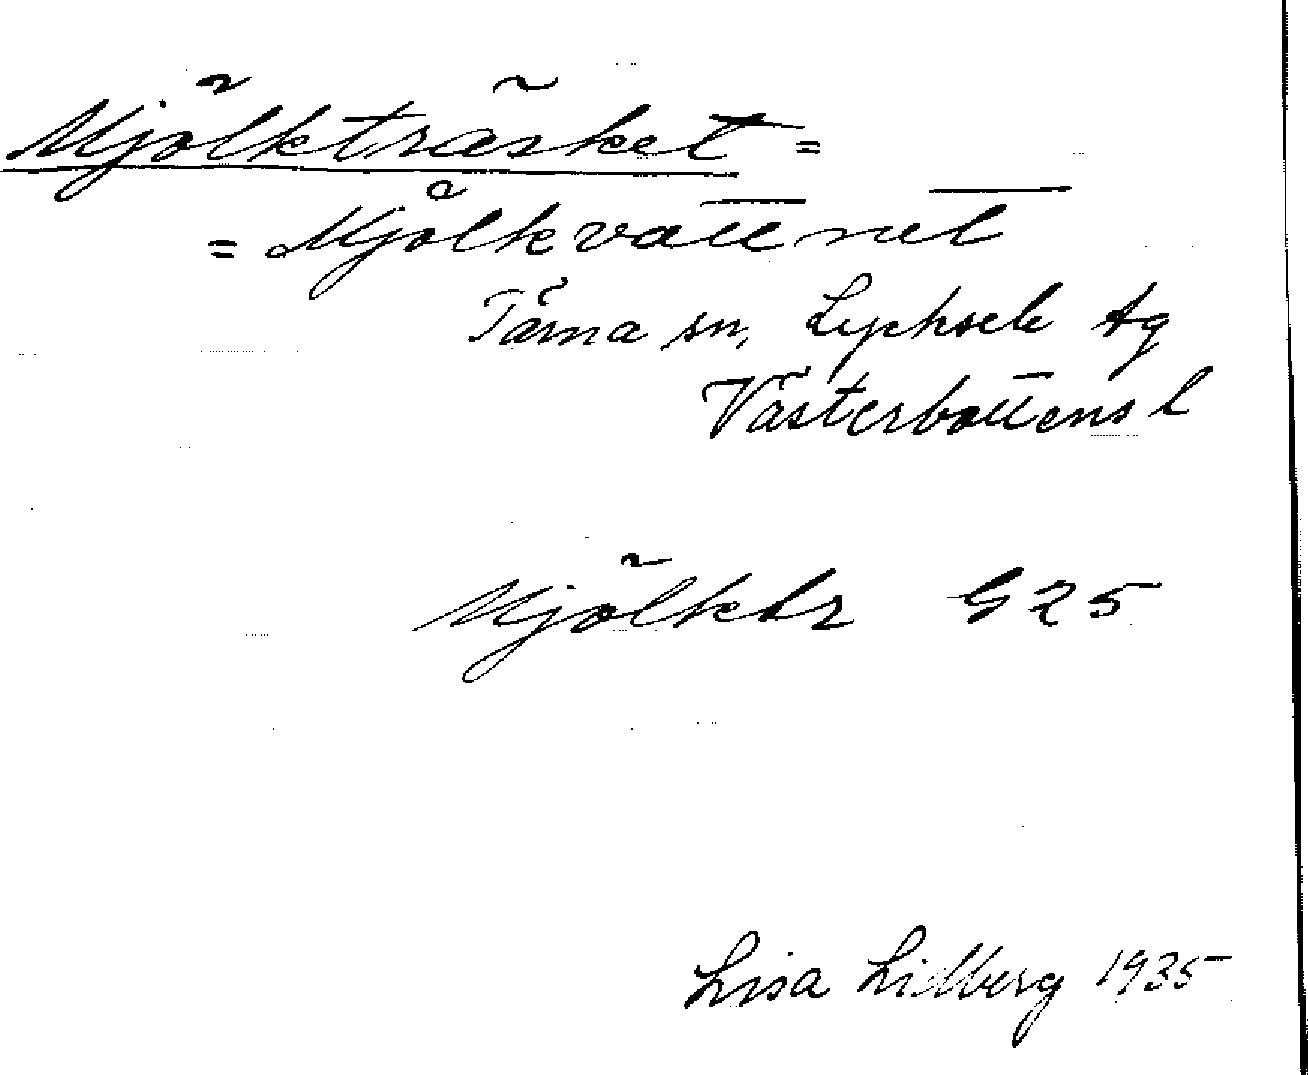 Mjölkträsket =
= Mjölkvattnet
Tärna sn, Lycksele tg
Västerbottens l
Mjölktr G25
Lisa Lidberg 1935